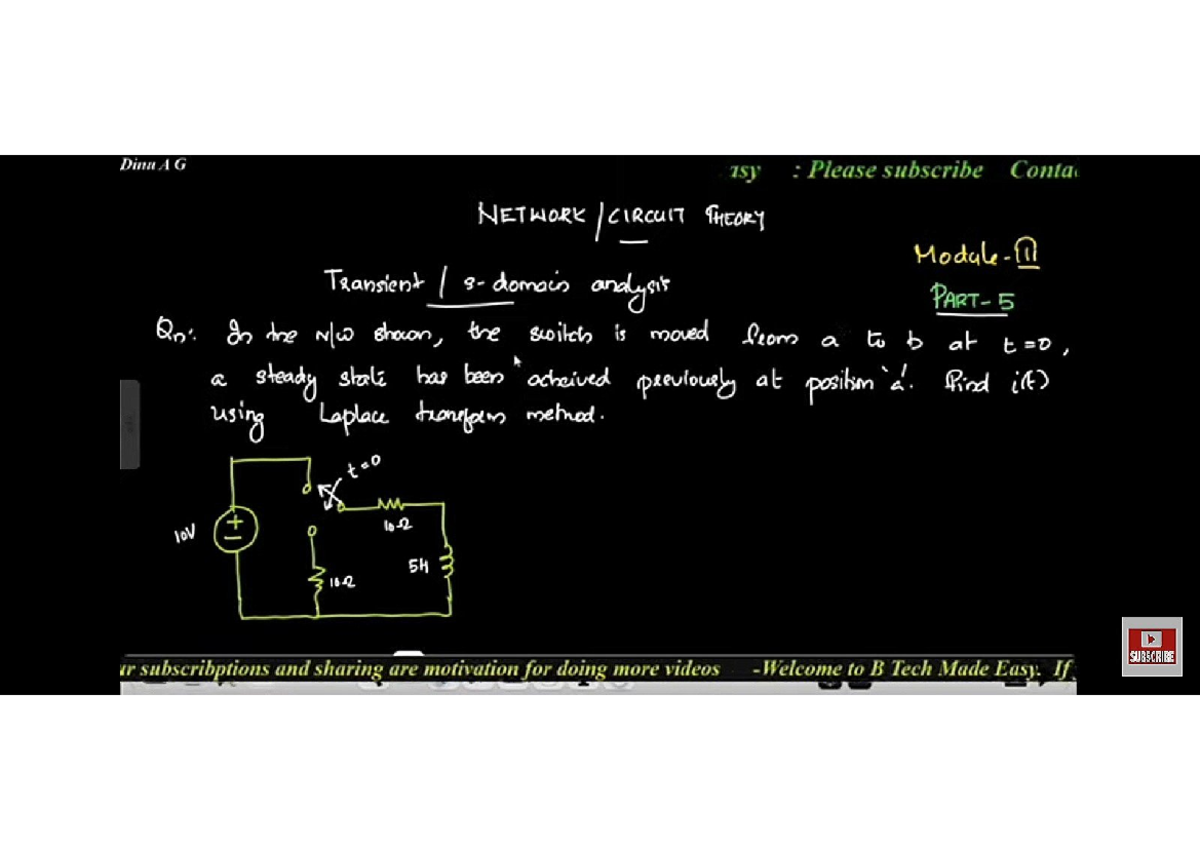 Dinu A G
asy : Please subscribe Conta
NETWORK / CIRCUIT THEORY
Module - III
Transient / s-domain analysis
PART - 5
Qn: In the N/W shown, the switch is moved from a to b at t=0,
a steady state has been acheived previously at position 'a'. Find i(t)
using Laplace transform method.
t=0
10Ω
10V
5H
10Ω
ur subscribptions and sharing are motivation for doing more videos -Welcome to B Tech Made Easy. If
SUBSCRIBE